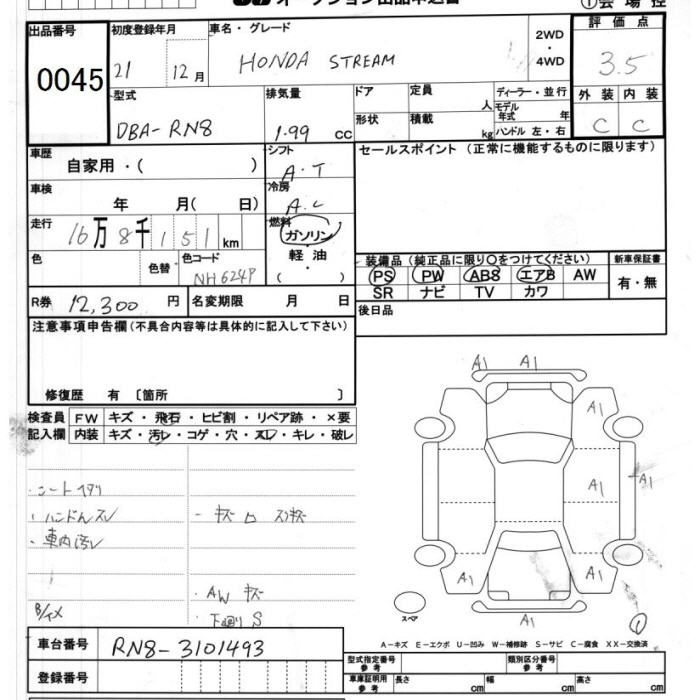 オークション出品申込書
①会場控
出品番号
0045
初度登録年月
21 12月
車名・グレード
HONDA STREAM
2WD
・
4WD
評価点
3.5
型式
DBA-RN8
排気量
1.99 CC
ドア
形状
定員
人
積載
kg
ディーラー・並行
モデル
年式 年
ハンドル 左・右
外装 内装
C C
車歴
自家用・( )
シフト
A・T
セールスポイント (正常に機能するものに限ります)
車検
年 月( 日)
冷房
A.C
走行
16万8千151km
燃料
ガソリン
・
軽油
・
( )
色
色替
色コード
NH624P
装備品(純正品に限り○をつけてください)
新車保証書
PS PW ABS エアB AW
SR ナビ TV カワ
有・無
R券 12,300円
名変期限 月 日
後日品
注意事項申告欄(不具合内容等は具体的に記入して下さい)
修復歴 有 〔箇所 〕
検査員
記入欄
FW キズ・飛石・ヒビ割・リペア跡・×要
内装 キズ・汚レ・コゲ・穴・スレ・キレ・破レ
・シートヘタリ
・ハンドルスレ
・車内汚レ
・AW キズ
・下廻り S
A1 A1
A1
A1 A1
A1 A1
A1
スペア
A-キズ E-エクボ U-凹み W-補修跡 S-サビ C-腐食 XX-交換済
車台番号 RN8-3101493
登録番号
型式指定番号
参考
類別区分番号
参考
車庫証明用
参考
長さ cm 幅 cm 高さ cm